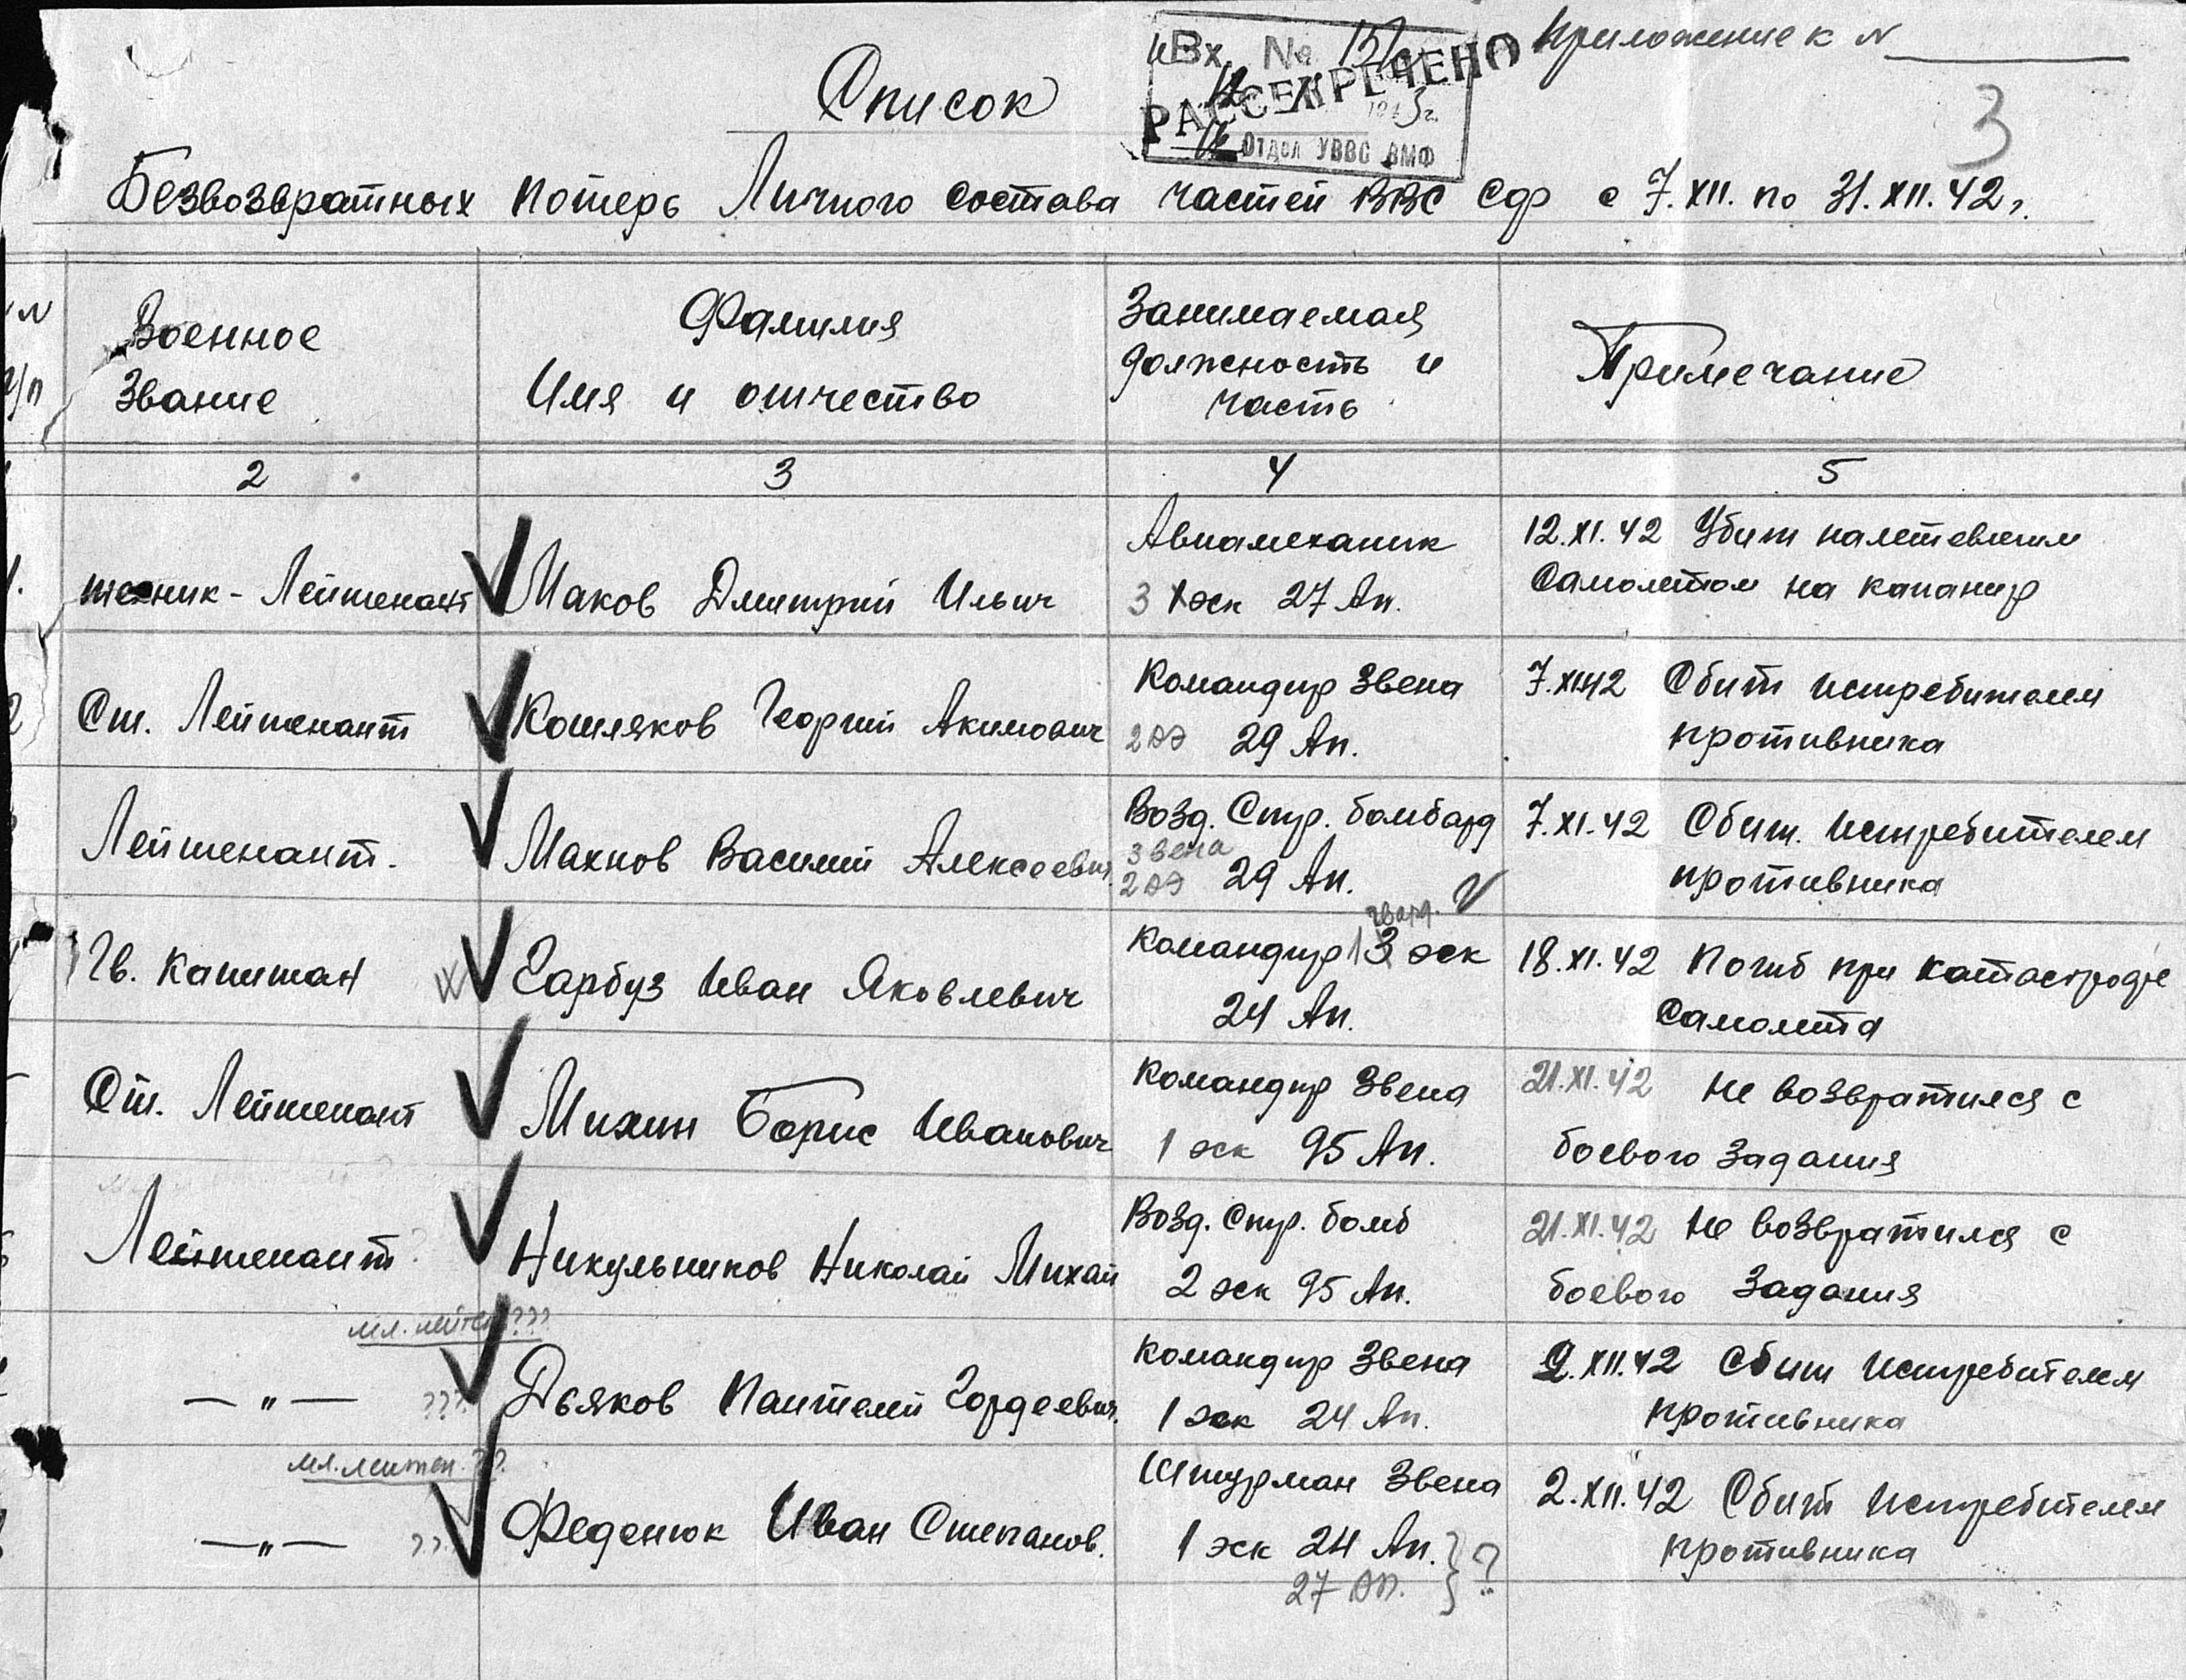 Приложение к N
Вх. №
РАССЕКРЕЧЕНО
Отдел УВВС ВМФ
3
Список
Безвозвратных потерь Личного состава частей ВВС СФ с 7.XII. по 31.XII.42г.
N п/п
Военное Звание
Фамилия Имя и отчество
Занимаемая должность и часть
Примечание
2 3 4 5
1. техник-Лейтенант Маков Дмитрий Ильич Авиамеханик 12.XI.42 Убит налетевшим
3 эск 27 Ап. Самолетом на капанир
Ст. Лейтенант Кошляков Георгий Акимович Командир Звена 7.XI.42 Сбит истребителем
2 АЭ 29 Ап. противника
Лейтенант. Махнов Василий Алексеевич Возд. Стр. бомбард 7.XI.42 Сбит. Истребителем
звена
2 АЭ 29 Ап. противника
гвард.
Гв. Капитан Гарбуз Иван Яковлевич Командир 13 эск 18.XI.42 Погиб при катастрофе
24 Ап. Самолета
Ст. Лейтенант Михин Борис Иванович Командир Звена 21.XI.42 Не возвратился с
1 эск 95 Ап. боевого Задания
Лейтенант ? Никульников Николай Михай Возд. Стр. бомб 21.XI.42 Не возвратился с
2 эск 95 Ап. боевого Задания
мл. лейтен ???
—"— ??? Дьяков Пантелей Гордеевич. Командир Звена 2.XII.42 Сбит Истребителем
1 эск 24 Ап. противника
мл. лейтен. ??.
—"— ?? Феденюк Иван Степанов. Штурман Звена 2.XII.42 Сбит Истребителем
1 эск 24 Ап. } ? противника
27 АП.